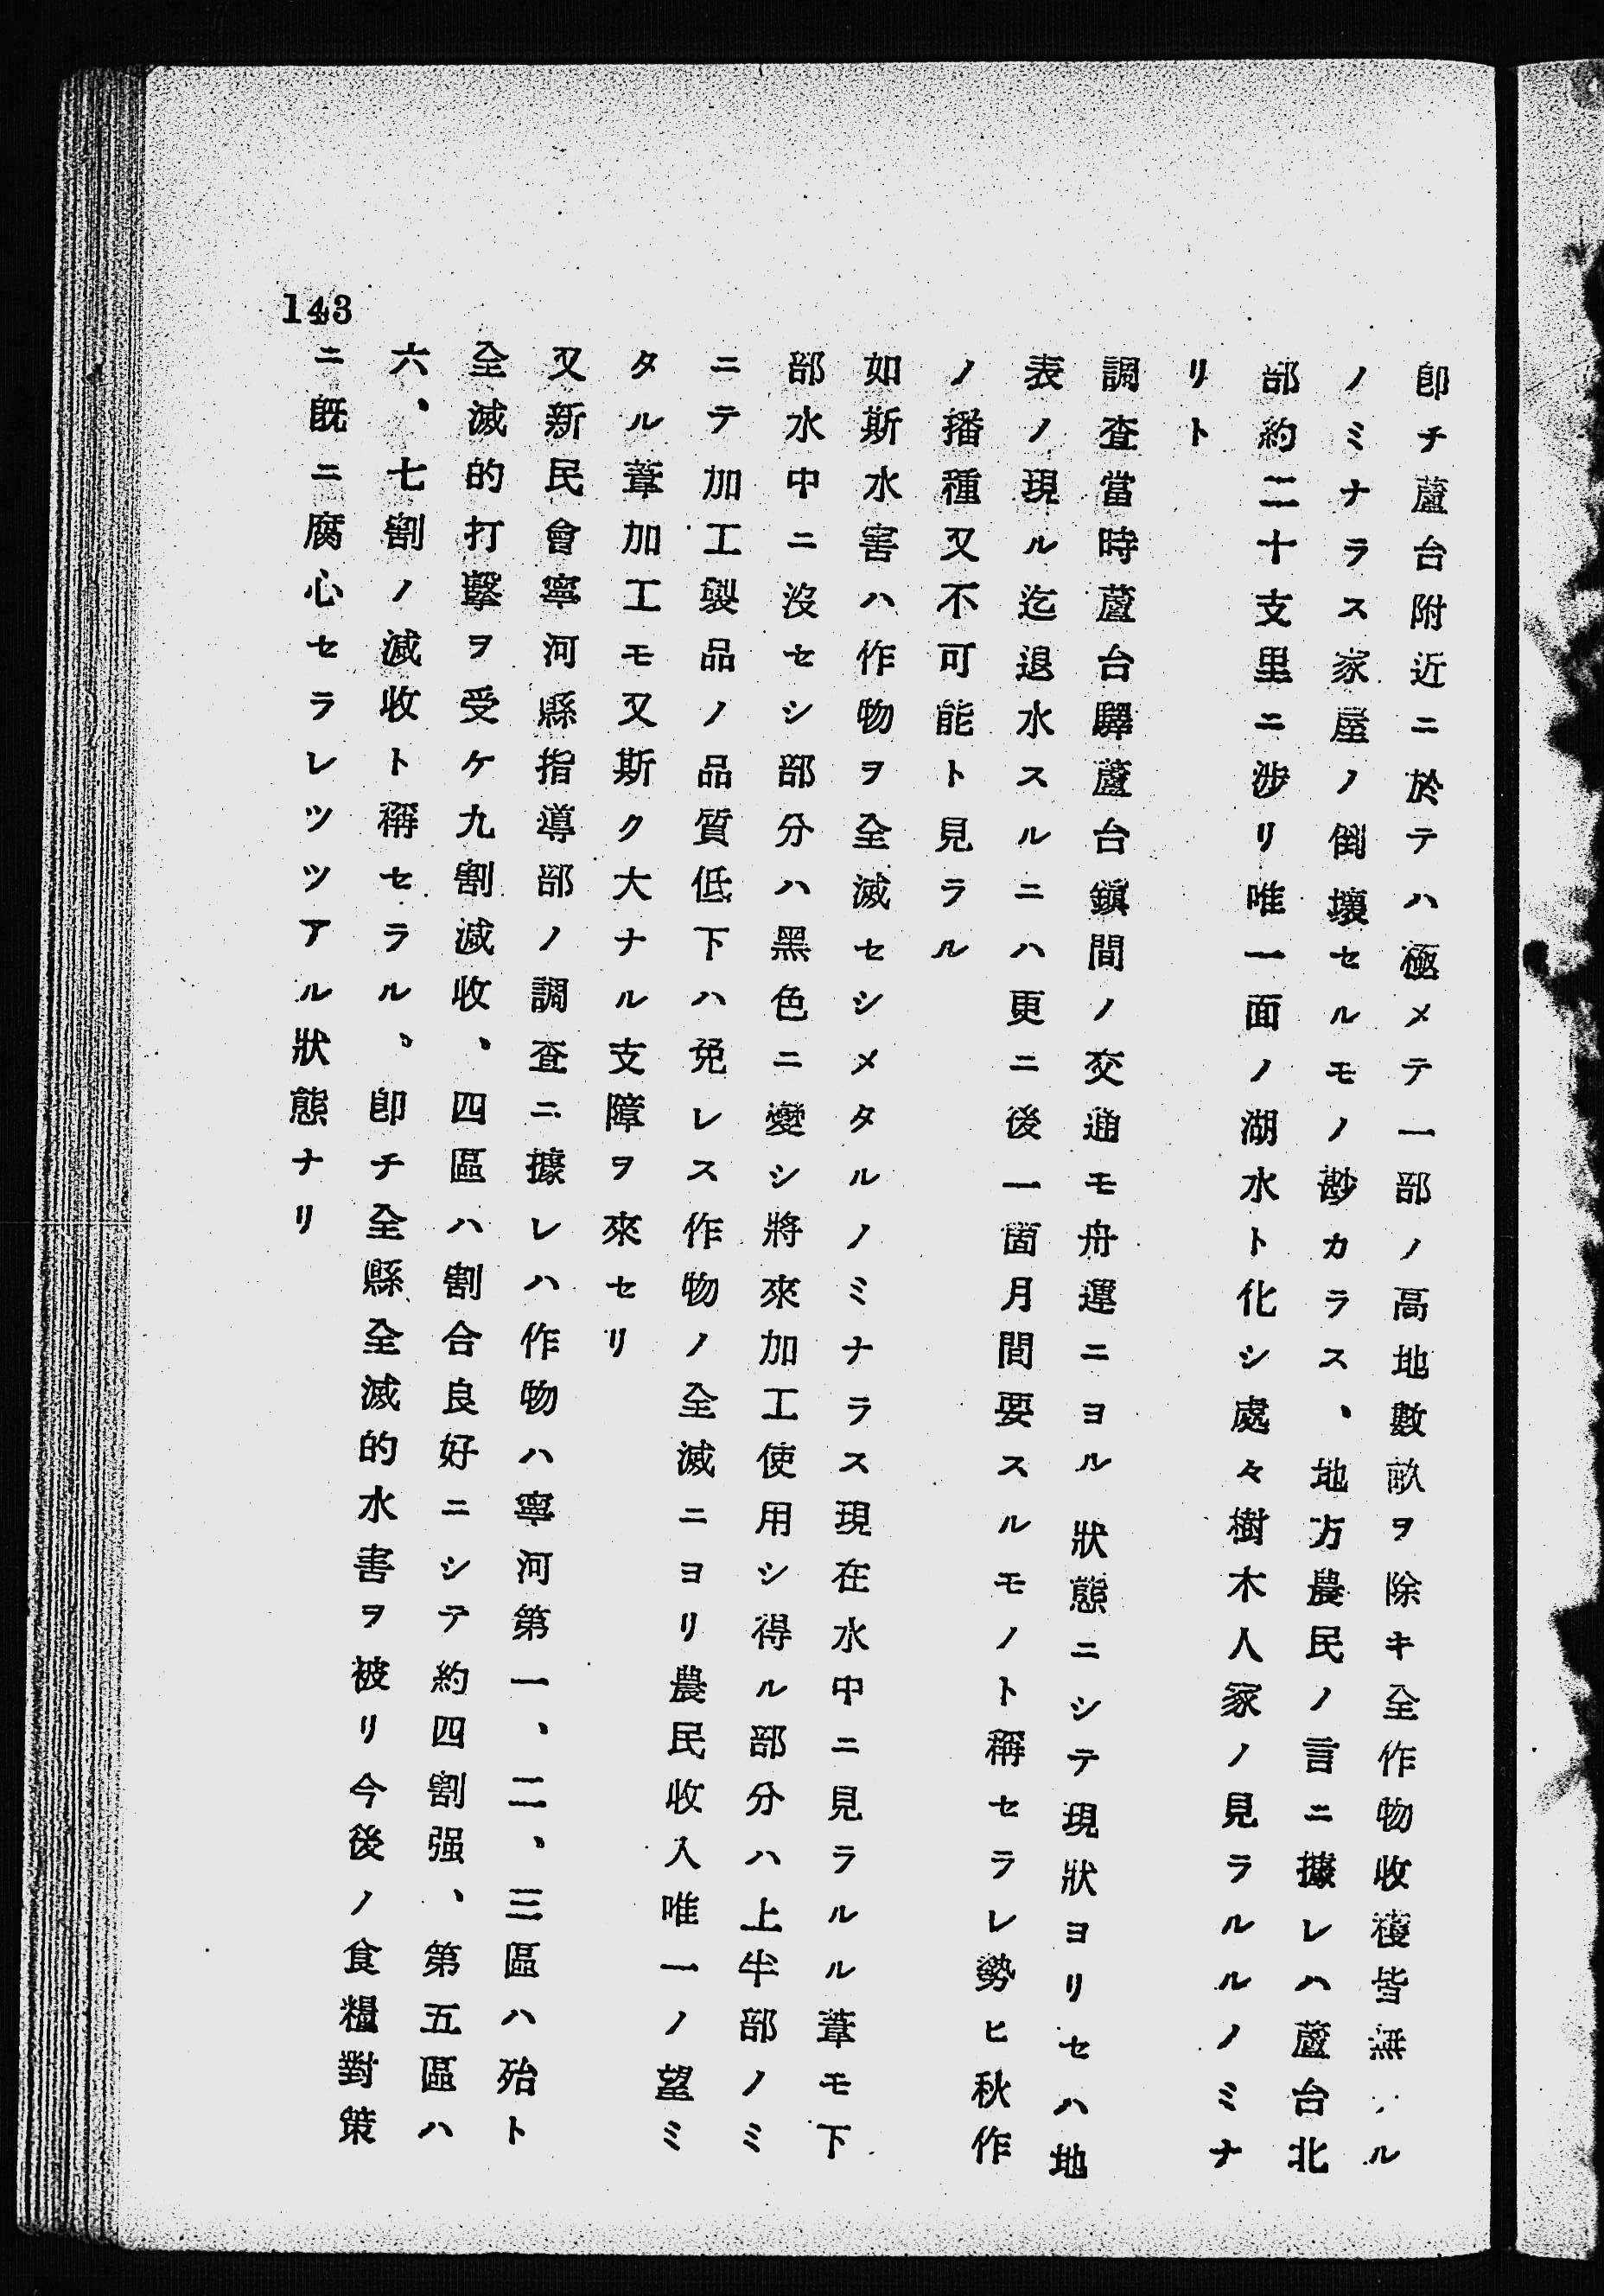 卽チ蘆台附近ニ於テハ極メテ一部ノ高地數畝ヲ除キ全作物收穫皆無ナル
ノミナラス家屋ノ倒壞セルモノ尠カラス、地方農民ノ言ニ據レハ蘆台北
部約二十支里ニ涉リ唯一面ノ湖水ト化シ處々樹木人家ノ見ラルルノミナ
リト
調査當時蘆台驛蘆台鎭間ノ交通モ舟運ニヨル狀態ニシテ現狀ヨリセハ地
表ノ現ル迄退水スルニハ更ニ後一箇月間要スルモノト稱セラレ勢ヒ秋作
ノ播種又不可能ト見ラル
如斯水害ハ作物ヲ全滅セシメタルノミナラス現在水中ニ見ラルル葦モ下
部水中ニ沒セシ部分ハ黑色ニ變シ將來加工使用シ得ル部分ハ上半部ノミ
ニテ加工製品ノ品質低下ハ免レス作物ノ全滅ニヨリ農民收入唯一ノ望ミ
タル葦加工モ又斯ク大ナル支障ヲ來セリ
又新民會寧河縣指導部ノ調査ニ據レハ作物ハ寧河第一、二、三區ハ殆ト
全滅的打擊ヲ受ケ九割減收、四區ハ割合良好ニシテ約四割强、第五區ハ
六、七割ノ減收ト稱セラル、卽チ全縣全滅的水害ヲ被リ今後ノ食糧對策
ニ旣ニ腐心セラレツツアル狀態ナリ
143